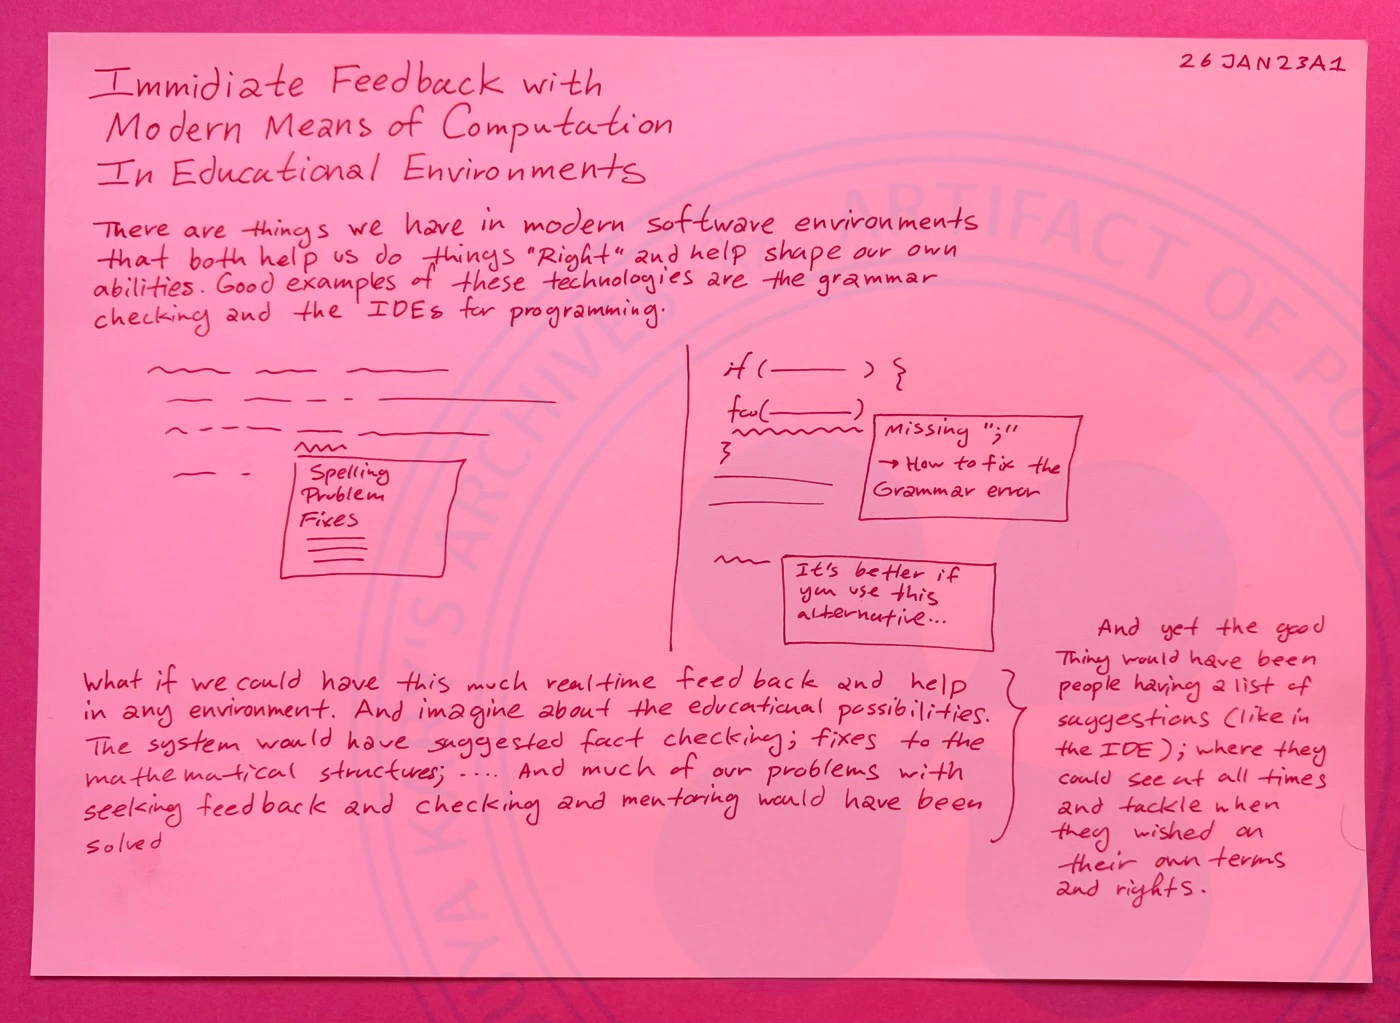 26 JAN23A1
Immidiate Feedback with
Modern Means of Computation
In Educational Environments
There are things we have in modern software environments
that both help us do things "Right" and help shape our own
abilities. Good examples of these technologies are the grammar
checking and the IDEs for programming.
Spelling
Problem
Fixes
if ( ) {
foo( )
}
Missing ";"
→ How to fix the
Grammar error
It's better if
you use this
alternative...
What if we could have this much realtime feedback and help
in any environment. And imagine about the educational possibilities.
The system would have suggested fact checking; fixes to the
mathematical structures; .... And much of our problems with
seeking feedback and checking and mentoring would have been
solved
And yet the good
Thing would have been
people having a list of
suggestions (like in
the IDE); where they
could see at all times
and tackle when
they wished on
their own terms
and rights.
KARY'S ARCHIVES ARTIFACT OF